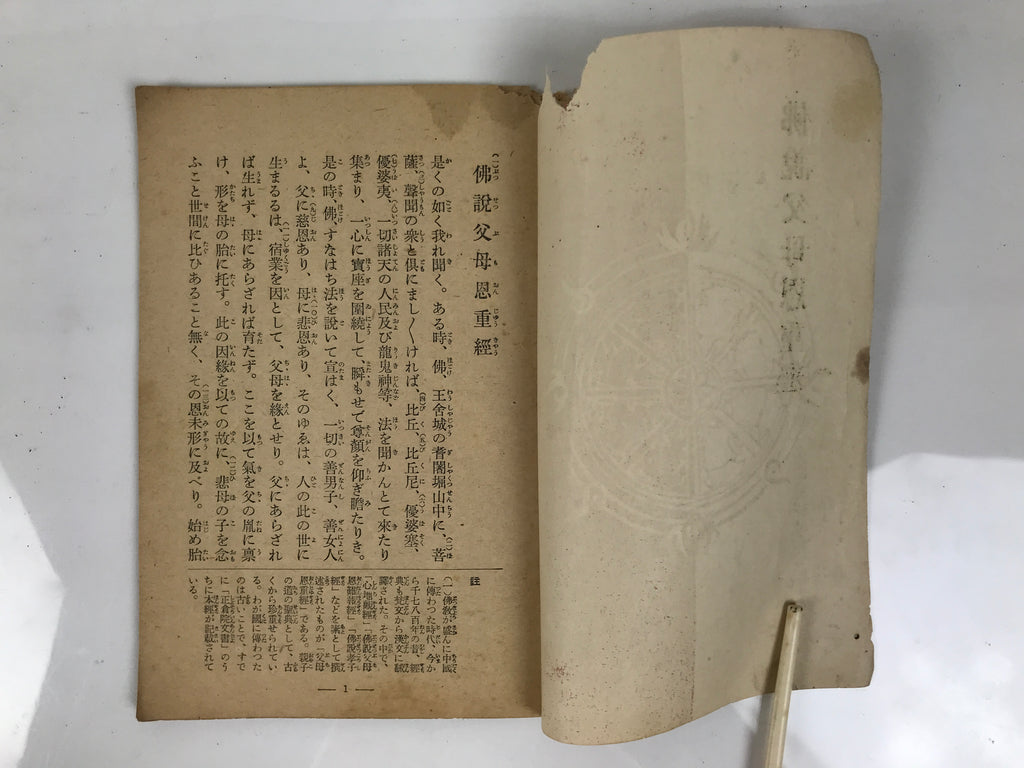 佛說父母恩重經
是くの如く我れ聞く。ある時、佛、王舍城の耆闍堀山中に、菩
薩、聲聞の衆と倶にまし〱ければ、比丘、比丘尼、優婆塞、
優婆夷、一切諸天の人民及び龍鬼神等、法を聞かんとて來たり
集まり、一心に寶座を圍繞して、瞬もせで尊顏を仰ぎ瞻たりき。
是の時、佛、すなはち法を說いて宣はく、一切の善男子、善女人
よ、父に慈恩あり、母に悲恩あり、そのゆゑは、人の此の世に
生まるるは、宿業を因として、父母を緣とせり。父にあらざれ
ば生れず、母にあらざれば育たず。ここを以て氣を父の胤に稟
け、形を母の胎に托す。此の因緣を以ての故に、悲母の子を念
ふこと世間に比ひあること無く、その恩未形に及べり。始め胎
註
(一)佛敎が盛んに中國
に傳わつた時代、今か
ら千七八百年の昔、經
典も梵文から漢文に飜
譯された。その中で、
「心地觀經」「佛說父母
恩難報經」「佛說孝子
經」などを素として撰
述されたものが「父母
恩重經」である。親子
の道の聖典として、古
くから珍重せられてい
る。わが國に傳わつた
のは古いことで、すで
に「正倉院文書」のう
ちに本經が記載されて
いる。
— 1 —
佛說父母恩重經